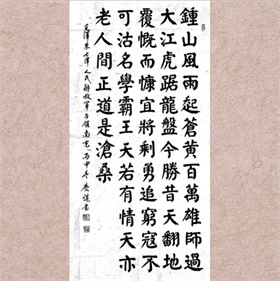 鍾山風雨起蒼黃百萬雄師過
大江虎踞龍盤今勝昔天翻地
覆慨而慷宜將剩勇追窮寇不
可沽名學霸王天若有情天亦
老人間正道是滄桑
毛澤東七律人民解放軍占領南京丙申年書